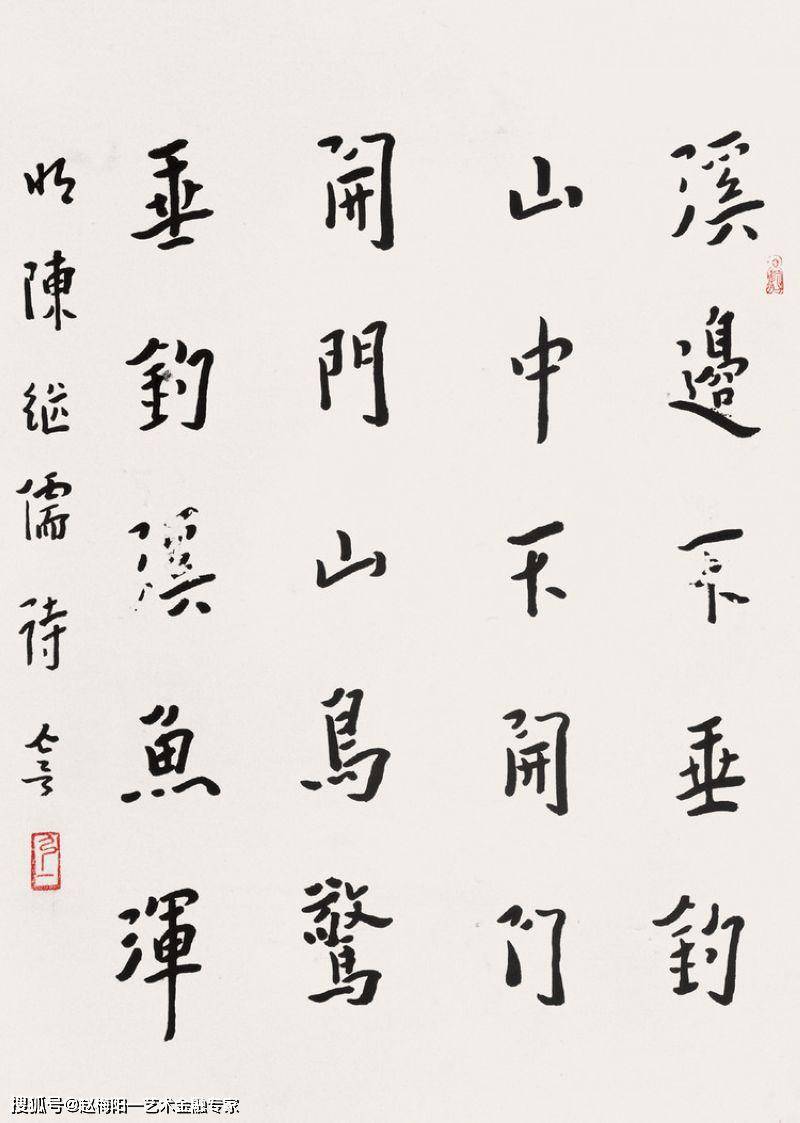 溪邊不垂釣
山中不開门
開門山鳥驚
垂釣溪魚渾
明陳継儒詩
搜狐号@赵梅阳—艺术金融专家